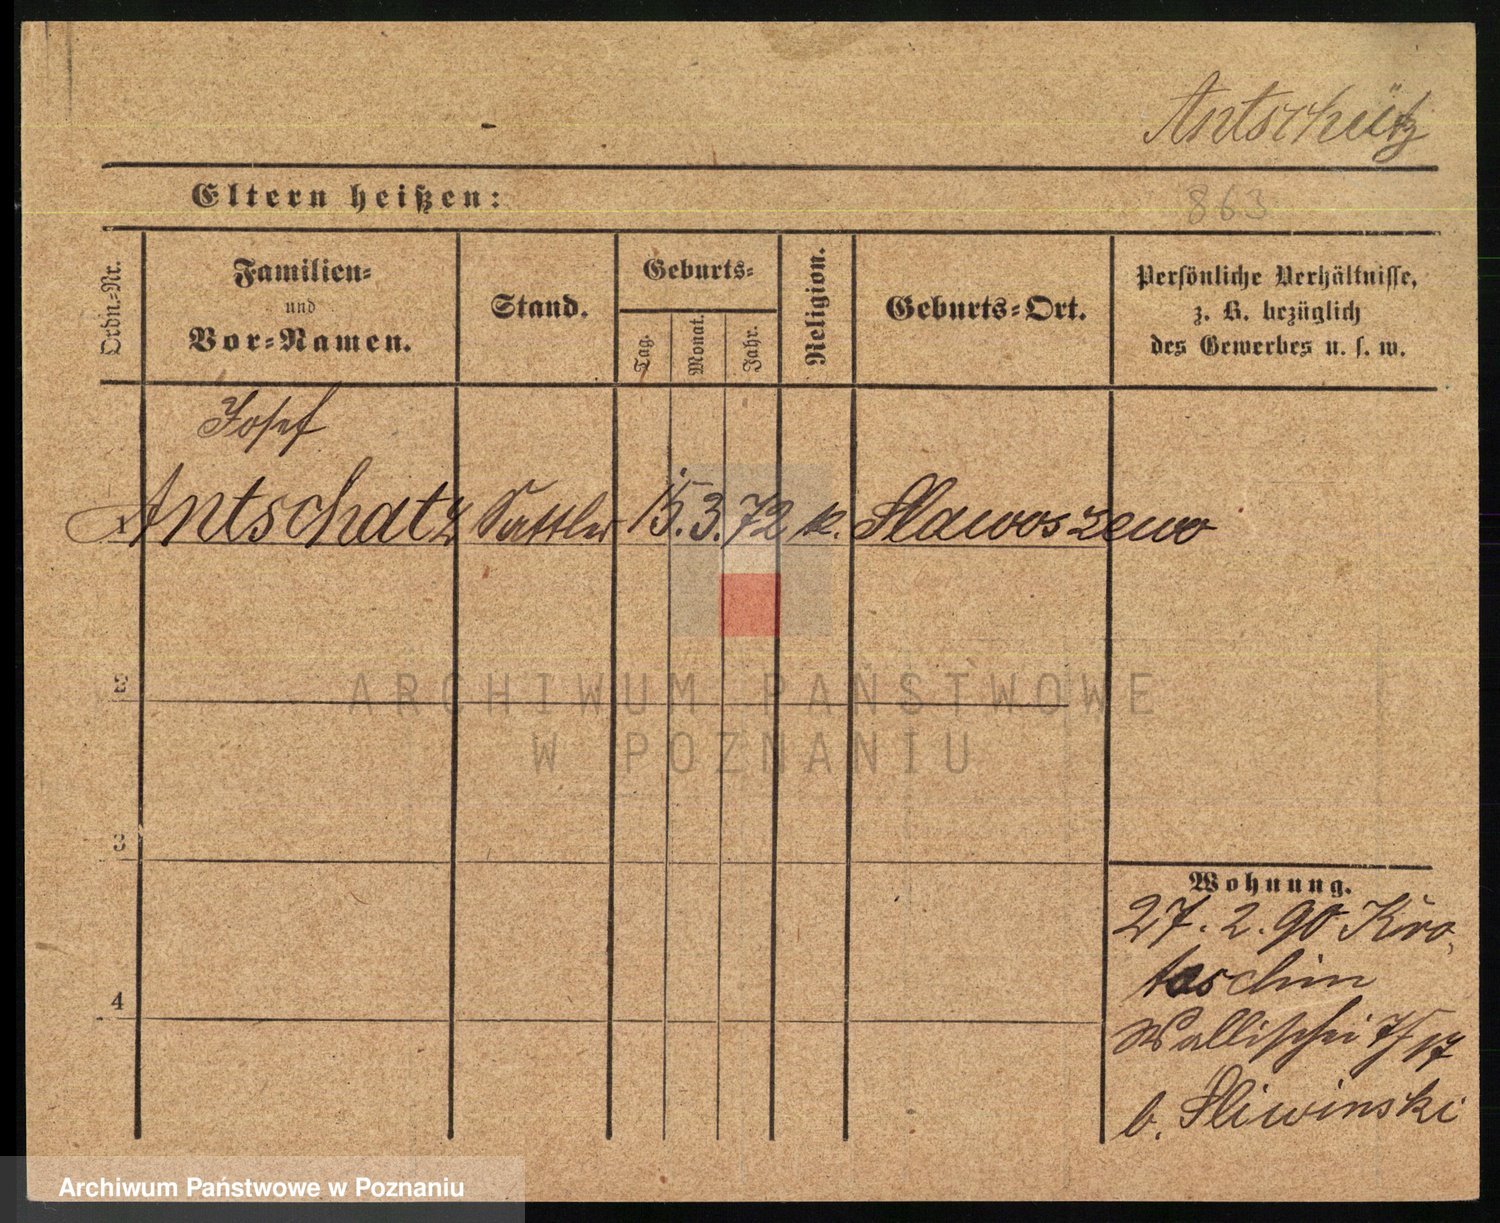 Antschütz
Eltern heißen:
863
Ordn.-Nr.
Familien-
und
Vor-Namen.
Stand.
Geburts-
Tag.
Monat.
Jahr.
Religion.
Geburts-Ort.
Persönliche Verhältnisse,
z. B. bezüglich
des Gewerbes u. s. w.
Josef
1 Antschatz Sattler 15. 3. 72 k. Slawoszewo
2
ARCHIWUM PAŃSTWOWE
W POZNANIU
3
Wohnung.
27. 2. 90 Kro-
toschin
4
Wallischei 7/17
b. Sliwinski
Archiwum Państwowe w Poznaniu